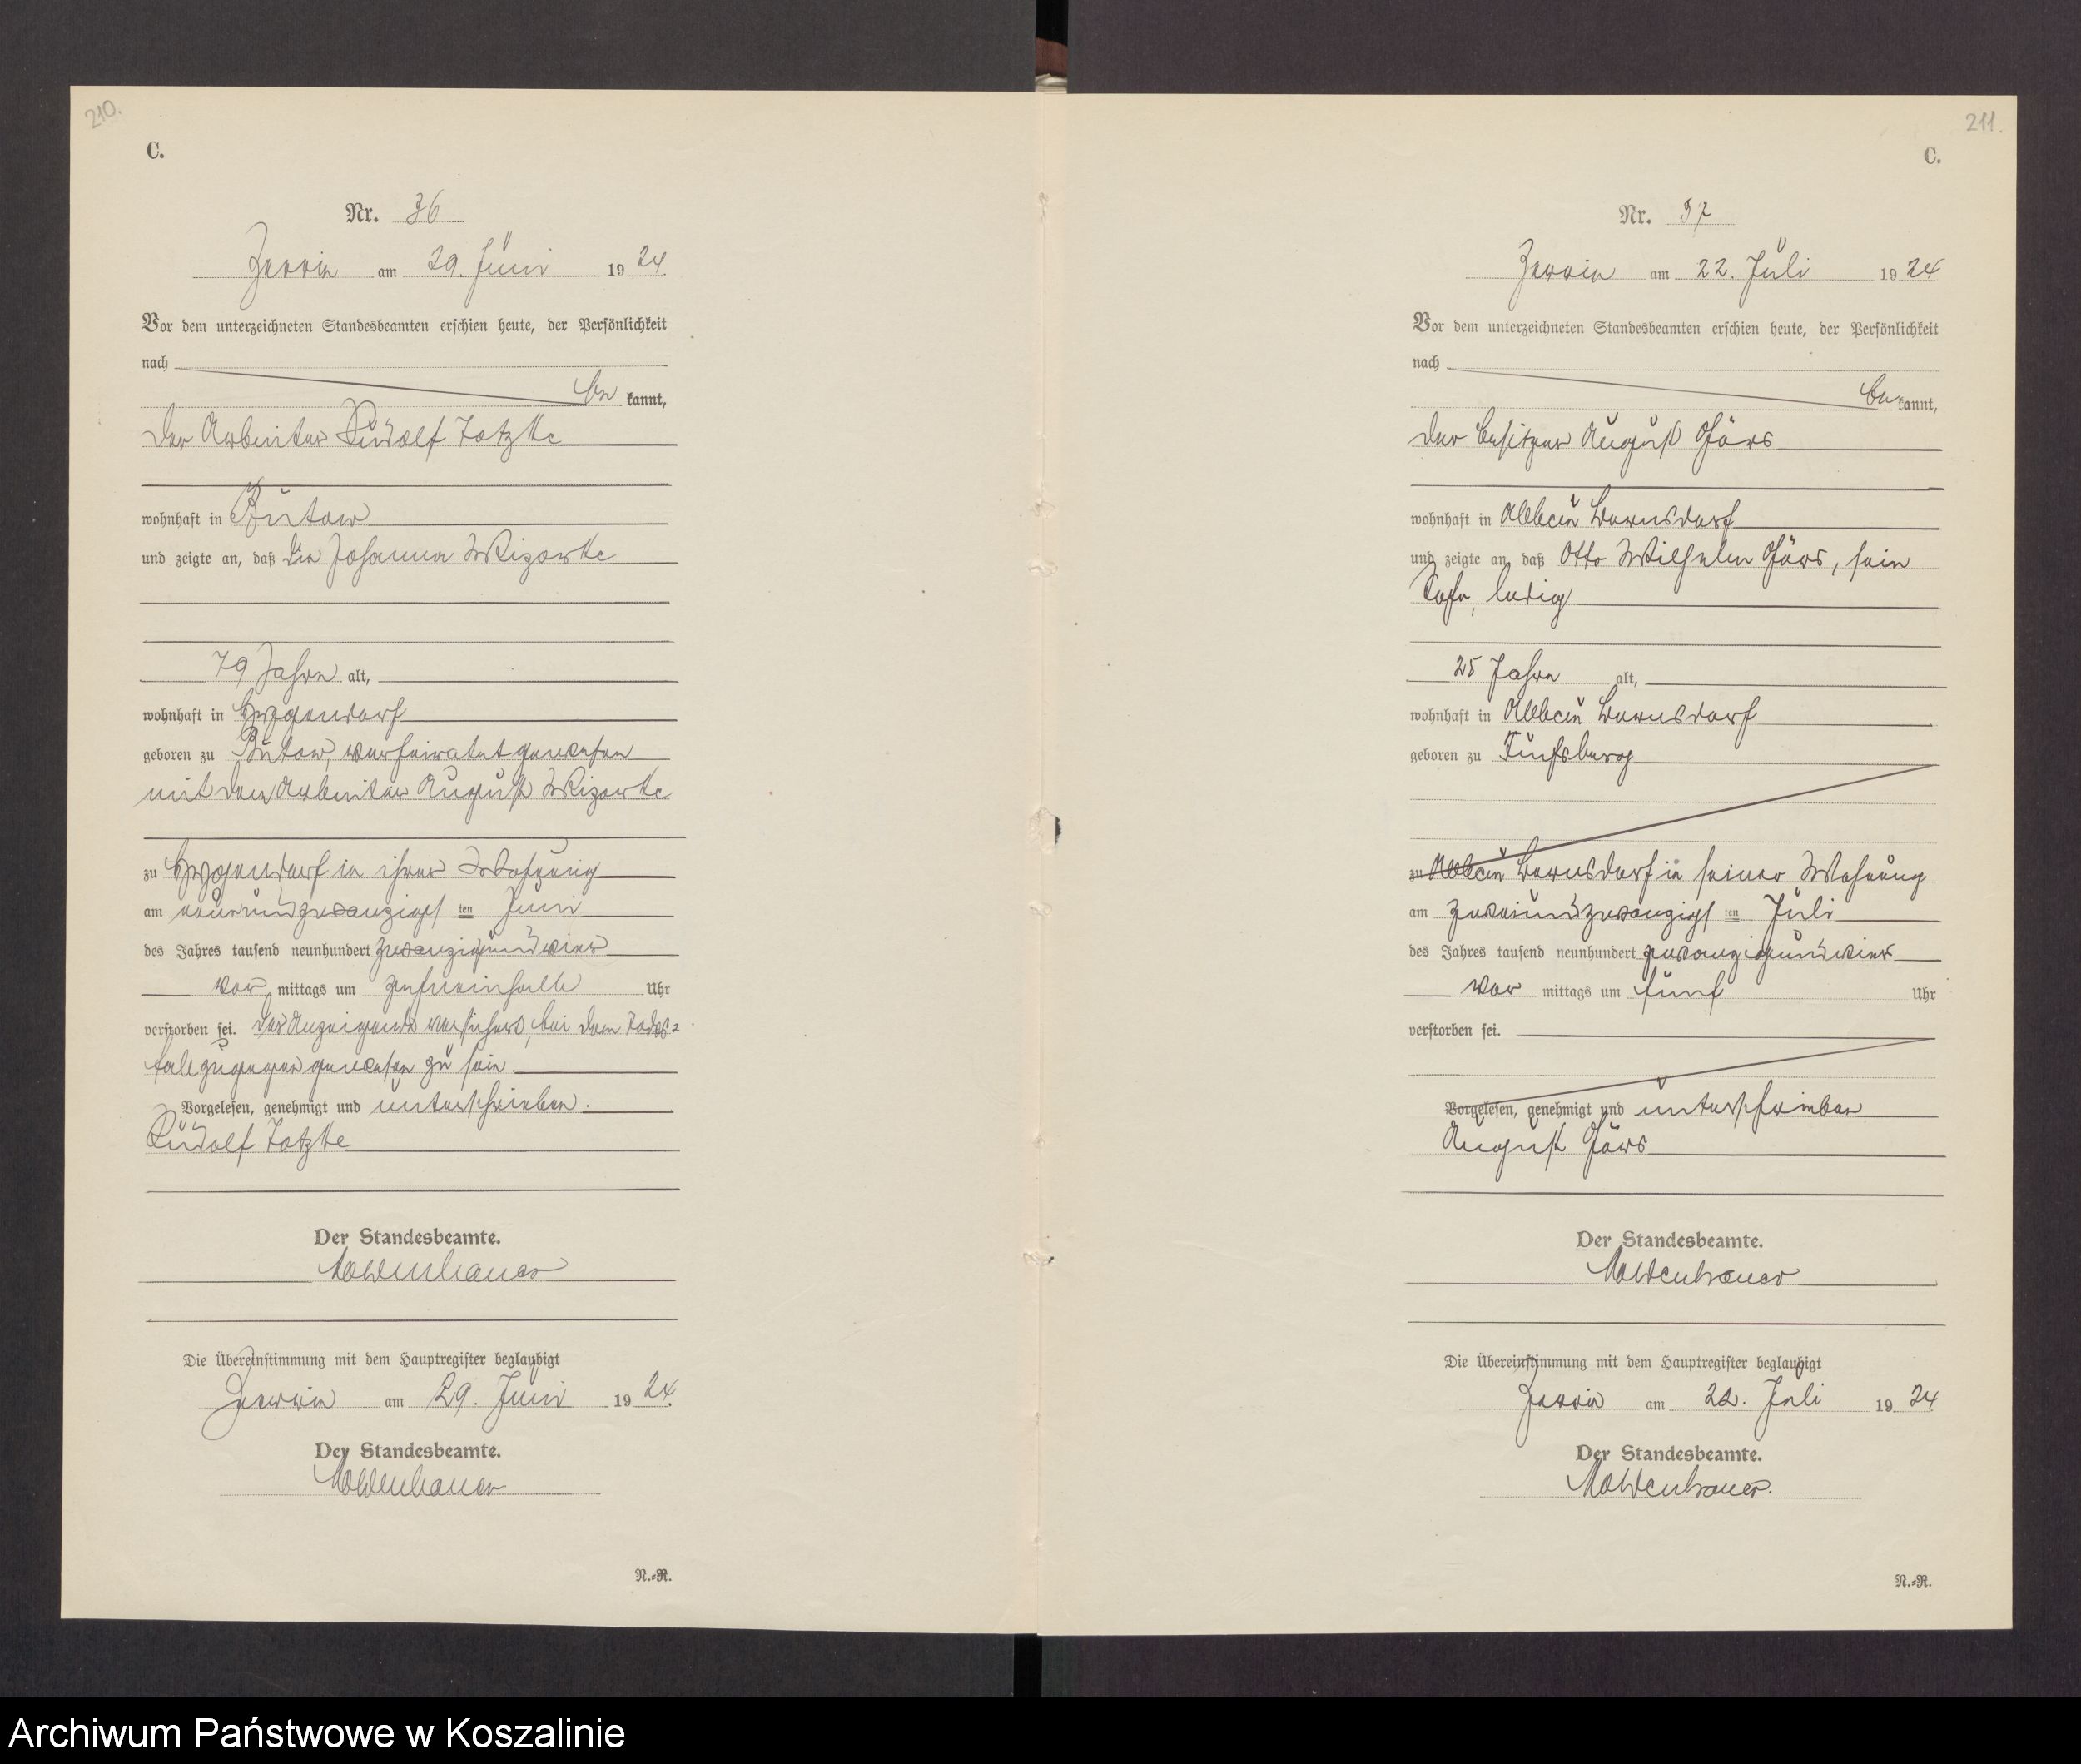 210.
C.
Nr. 36
Zerrin am 29. Juni 1924.
Vor dem unterzeichneten Standesbeamten erschien heute, der Persönlichkeit
nach
be kannt,
der Arbeiter Rudolf Totzke
wohnhaft in Bütow
und zeigte an, daß die Johanna
79 Jahre alt,
wohnhaft in Hygendorf
geboren zu Bütow, verheiratet gewesen
mit dem Arbeiter August
zu Hygendorf in ihrer Wohnung
am neunundzwanzigsten Juni
des Jahres tausend neunhundert zwanzigundvier
vor mittags um zehneinhalb Uhr
verstorben sei. Der Anzeigende versichert, bei dem Todes=
fall zugegen gewesen zu sein.
Vorgelesen, genehmigt und unterschrieben.
Rudolf Totzke
Der Standesbeamte.
Moldenhauer
Die Übereinstimmung mit dem Hauptregister beglaubigt
Zerrin am 29. Juni 1924.
Der Standesbeamte.
Moldenhauer
N.=R.
211.
C.
Nr. 37
Zerrin am 22. Juli 1924
Vor dem unterzeichneten Standesbeamten erschien heute, der Persönlichkeit
nach
be kannt,
der Besitzer August Görs
wohnhaft in Abbau Bernsdorf
und zeigte an, daß Otto Wilhelm Görs, sein
Sohn, ledig
25 Jahre alt,
wohnhaft in Abbau Bernsdorf
geboren zu
zu Abbau Bernsdorf in seiner Wohnung
am zweiundzwanzigsten Juli
des Jahres tausend neunhundert zwanzigundvier
vor mittags um fünf Uhr
verstorben sei.
Vorgelesen, genehmigt und unterschrieben
August Görs
Der Standesbeamte.
Moldenhauer
Die Übereinstimmung mit dem Hauptregister beglaubigt
Zerrin am 22. Juli 1924
Der Standesbeamte.
Moldenhauer.
N.=R.
Archiwum Państwowe w Koszalinie